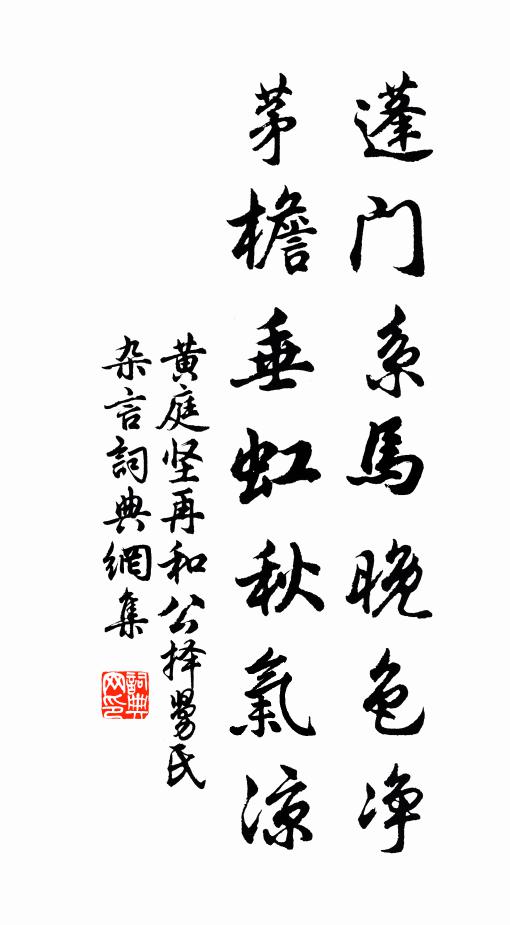 蓬门系馬晚色净
茅檐垂虹秋氣涼
黄庭坚再和公择舅氏
杂言詞典網集
詞典网印